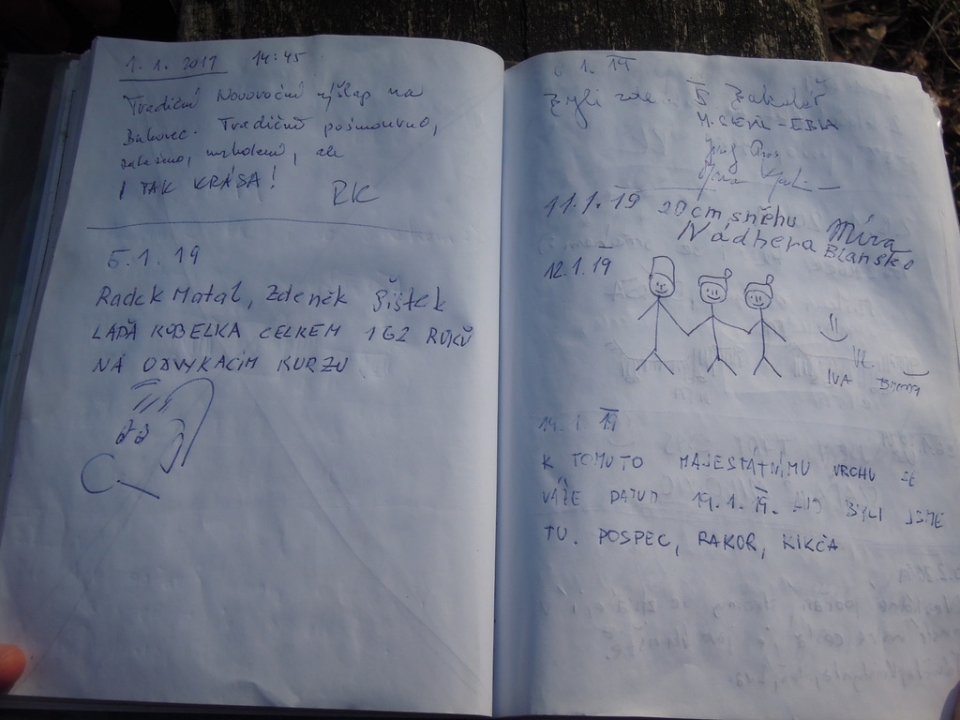 1. 1. 2019 14:45
Tradiční Novoroční výšlap na
Bukovec. Tradičně pošmourno,
zataženo, mrholení, ale
I TAK KRÁSA! RK
5.1.19
Radek Matal, Zdeněk Šístek
LAĎA KOBELKA CELKEM 162 RŮKŮ
NA ODVYKACÍM KURZU
1. 19
Byli zde
11.1.19 20 cm sněhu Míra
Nádhera Blansko
12.1.19
IVA
19
K TOMUTO MAJESTÁTNÍMU VRCHU SE
VÁŽE DATUM 19.1.19. BYLI JSME
TU. POSPEC, RAKOR, KIKČA